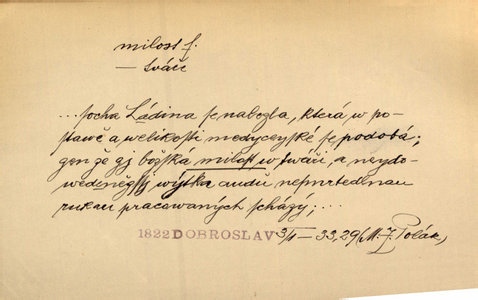 milost f.
— tváři
... socha Ládina se nalozla, která w po-
stawě a welikosti medyceyské se podobá;
gen že gj božská milost w twáři, a neydo-
wedeněgssj wýtka audů nesmrtedlnau
rukau pracowaných scházý; ...
1822 DOBROSLAV 3/II — 33,29 (M. Z. Polák)